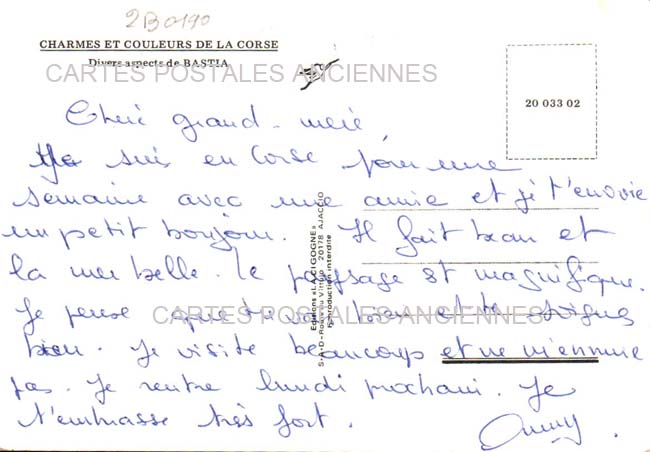 2B0190
CHARMES ET COULEURS DE LA CORSE
Divers aspects de BASTIA
CARTES POSTALES ANCIENNES
20 033 02
Cheré grand-mère,
Je suis en Corse pour une
semaine avec une amie et je t'envoie
un petit bonjour. Il fait beau et
la mer belle. Le paysage est magnifique.
Je pense que tu vas bien et te soignes
bien. Je visite beaucoup et ne m'ennuie
pas. Je rentre lundi prochain. Je
t'embrasse très fort.
Anny.
CARTES POSTALES ANCIENNES
Editions «L'ALTAGOGNE»
S.A.D - Route du Vittulo 20178 AJACCIO
Reproduction interdite